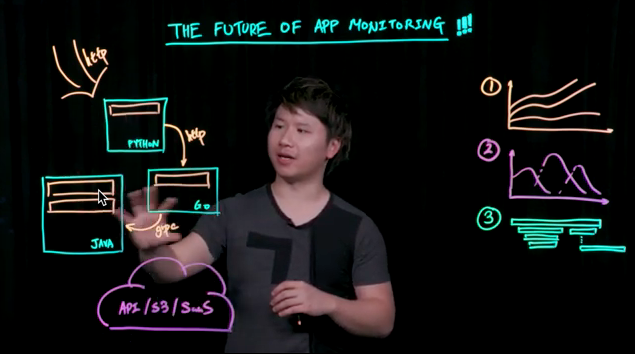 THE FUTURE OF APP MONITORING !!!
http
PYTHON
http
GO
grpc
JAVA
API/S3/SaaS
1
2
3
7